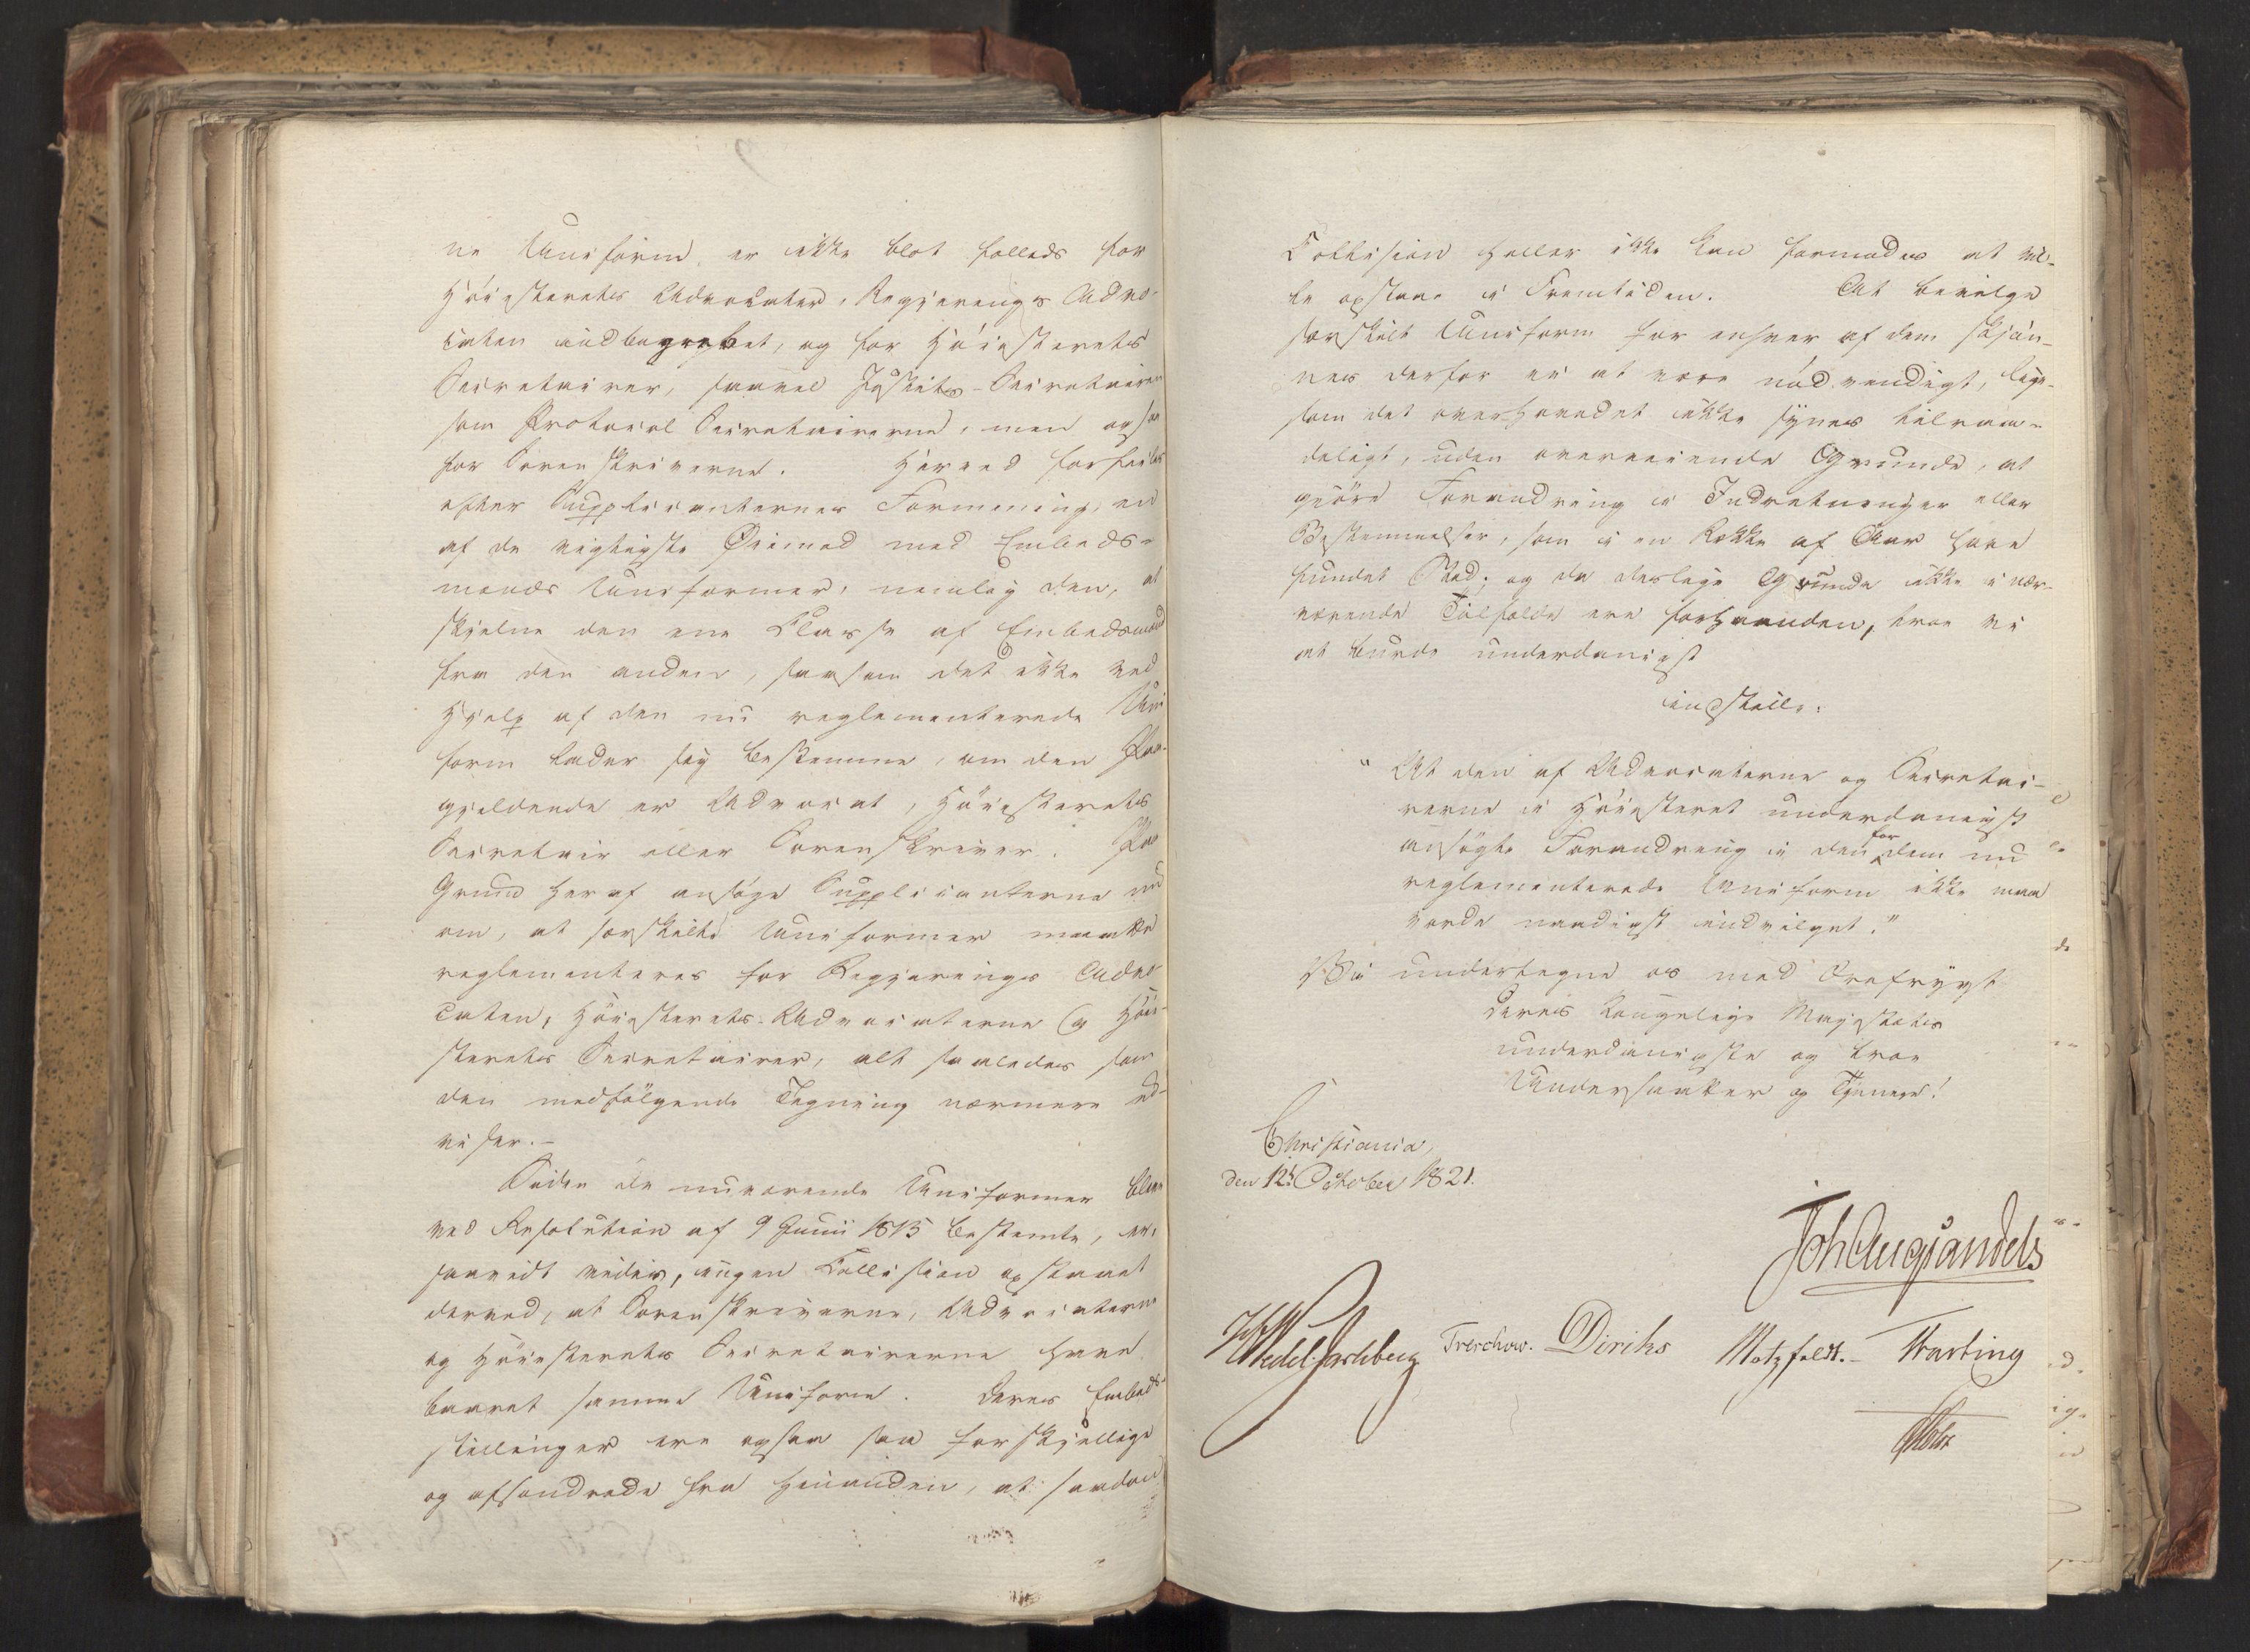 ne Uniform er ikke blot fælleds for
Höiesterets Advokater, Regjerings Advo-
caten indbegrebet, og for Höiesterets
Secretairer, saavel Justits-Secretairen
som Protocol Secretairerne, men ogsaa
for Sorenskriverne. Herved forfeiles
efter Supplicanternes Formening, et
af de vigtigste Øiemed med Embeds-
mænds Uniformer, nemlig den, at
skjelne den ene Classe af Embedsmænd
fra den anden, saasom det ikke ved
Hjelp af den nu reglementerede Uni
form lader sig bestemme, om den Paa-
gjeldende er Advocat, Höiesterets
Secretair eller Sorenskriver. Paa
Grund heraf ansöge Supplicanterne nu
om, at særskilte Uniformer maatte
reglementeres for Regjerings Advo
caten, Höiesterets-Advocaterne og Höie-
sterets Secretairer, alt saaledes som
den medfölgende Tegning nærmere ud-
viser.-
Siden de nuværende Uniformer bleve
ved Resolution af 9 Junii 1815 bestemte, er,
saavidt vides, ingen Collision opstaaet
derved, at Sorenskriverne, Advocaterne
og Höiesterets Secretairerne have
baaret samme Uniform. Deres Embeds-
stillinger ere ogsaa saa forskjellige
og afsondrede fra hinanden, at saadan
Collision heller ikke kan formodes at vil-
le opstaae i Fremtiden. At bevilge
særskilt Uniform for enhver af dem skjön-
nes derfor ei at være nödvendigt, lige-
som det overhovedet ikke synes tilraa-
deligt, uden overveiende Grunde, at
gjöre Forandring i Indretninger eller
Bestemmelser, som i en Række af Aar have
fundet Sted; og da deslige Grunde ikke i nær-
værende Tilfælde ere forhaanden, troe vi
at burde underdanigst
indstille:
"At den af Advocaterne og Secretai-
rerne i Höiesteret underdanigst
ansögte Forandring i den for dem nu
reglementerede Uniform ikke maa
vorde naadigst indvilget."
Vi undertegne os med Ærefrygt
Deres Kongelige Majestæts
underdanigste og troe
Undersaatter og Tjenere!
Christiania,
den 12te October 1821.
Joh Aug Sandels
HWedel Jarlsberg Treschow. Diriks Motzfeldt.- Fasting
Holst